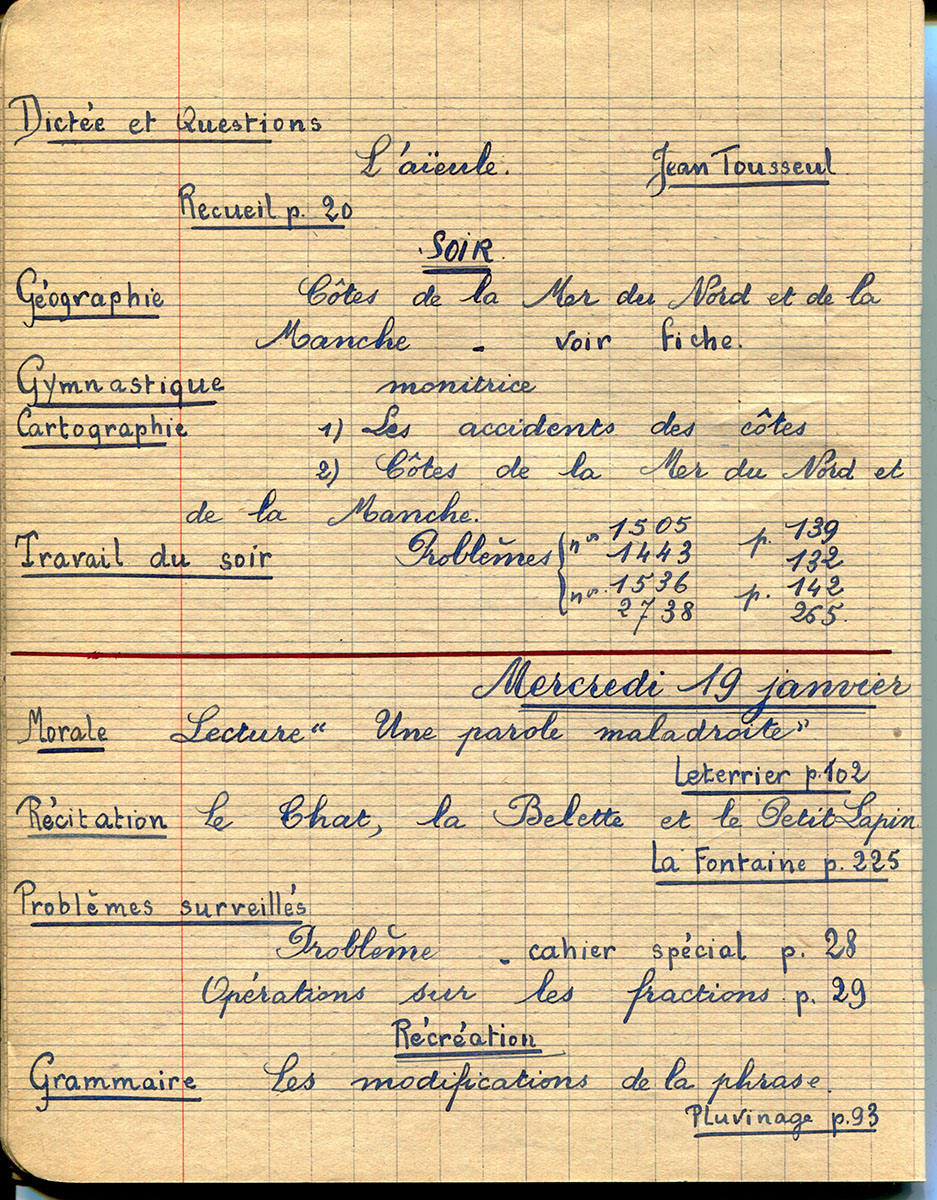 Dictée et Questions
L'aïeule. Jean Tousseul
Recueil p. 20
SOIR
Géographie Côtes de la Mer du Nord et de la
Manche - voir fiche.
Gymnastique monitrice
Cartographie 1) Les accidents des côtes
2) Côtes de la Mer du Nord et
de la Manche.
Travail du soir Problèmes { nos 1505 p. 139
1443 132
nos 1536 p. 142
2738 265.
Mercredi 19 janvier
Morale Lecture “ Une parole maladroite ”
Leterrier p. 102
Récitation Le Chat, la Belette et le Petit Lapin
La Fontaine p. 225
Problèmes surveillés
Problème - cahier spécial p. 28
Opérations sur les fractions p. 29
Récréation
Grammaire Les modifications de la phrase.
Pluvinage p. 93